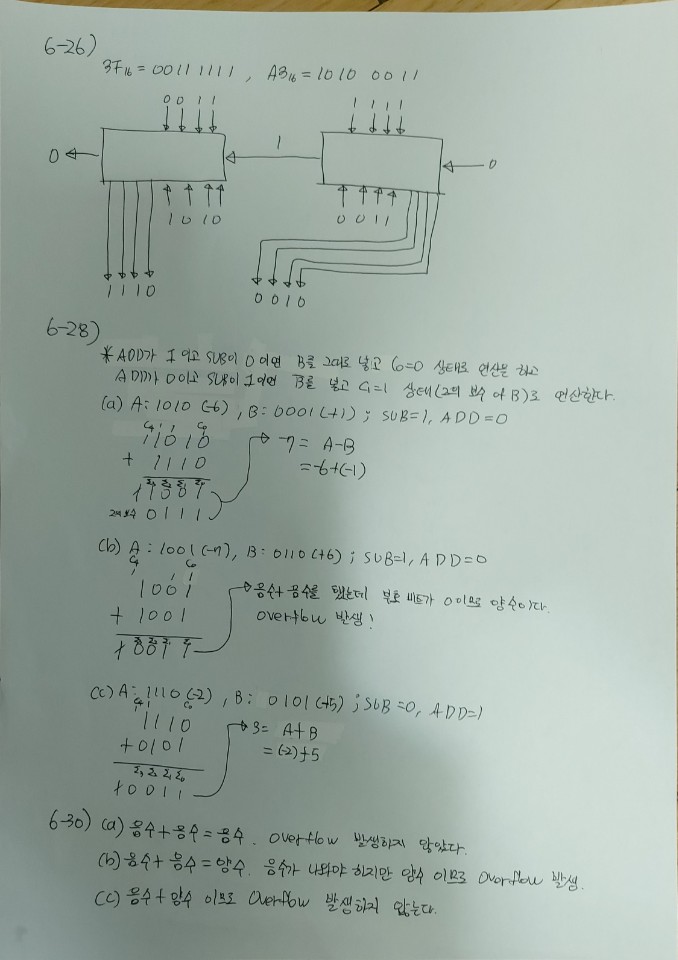 6-26)
3F₁₆ = 0011 1111 , A3₁₆ = 1010 0011
0 0 1 1
1 1 1 1
0
1
0
1 0 1 0
0 0 1 1
1 1 1 0
0 0 1 0
6-28)
* ADD가 1 이고 SUB이 0이면 B를 그대로 넣고 C₀=0 상태로 연산을 하고
ADD가 0이고 SUB이 1이면 B̅를 넣고 C₀=1 상태(2의 보수 of B)로 연산한다.
(a) A: 1010 (-6) , B: 0001 (+1) ; SUB=1, ADD=0
C₄ 1 1 C₀
1 1010
+ 1110
Σ₃ Σ₂ Σ₁ Σ₀
1 1001
2의 보수 0111
-7 = A-B
= -6+(-1)
(b) A : 1001 (-7), B: 0110 (+6) ; SUB=1, ADD=0
C₄ C₀
1 1 1
1001
+ 1001
1 0011
음수+음수를 했는데 부호 비트가 0이므로 양수이다.
overflow 발생!
(c) A: 1110 (-2) , B: 0101 (+5) ; SUB=0, ADD=1
C₄ 1 C₀
1110
+0101
Σ₃ Σ₂ Σ₁ Σ₀
1 0011
3= A+B
= (-2)+5
6-30) (a) 음수+음수 = 음수. overflow 발생하지 않았다.
(b) 음수+음수 = 양수. 음수가 나와야 하지만 양수 이므로 Overflow 발생.
(c) 음수+양수 이므로 Overflow 발생하지 않는다.